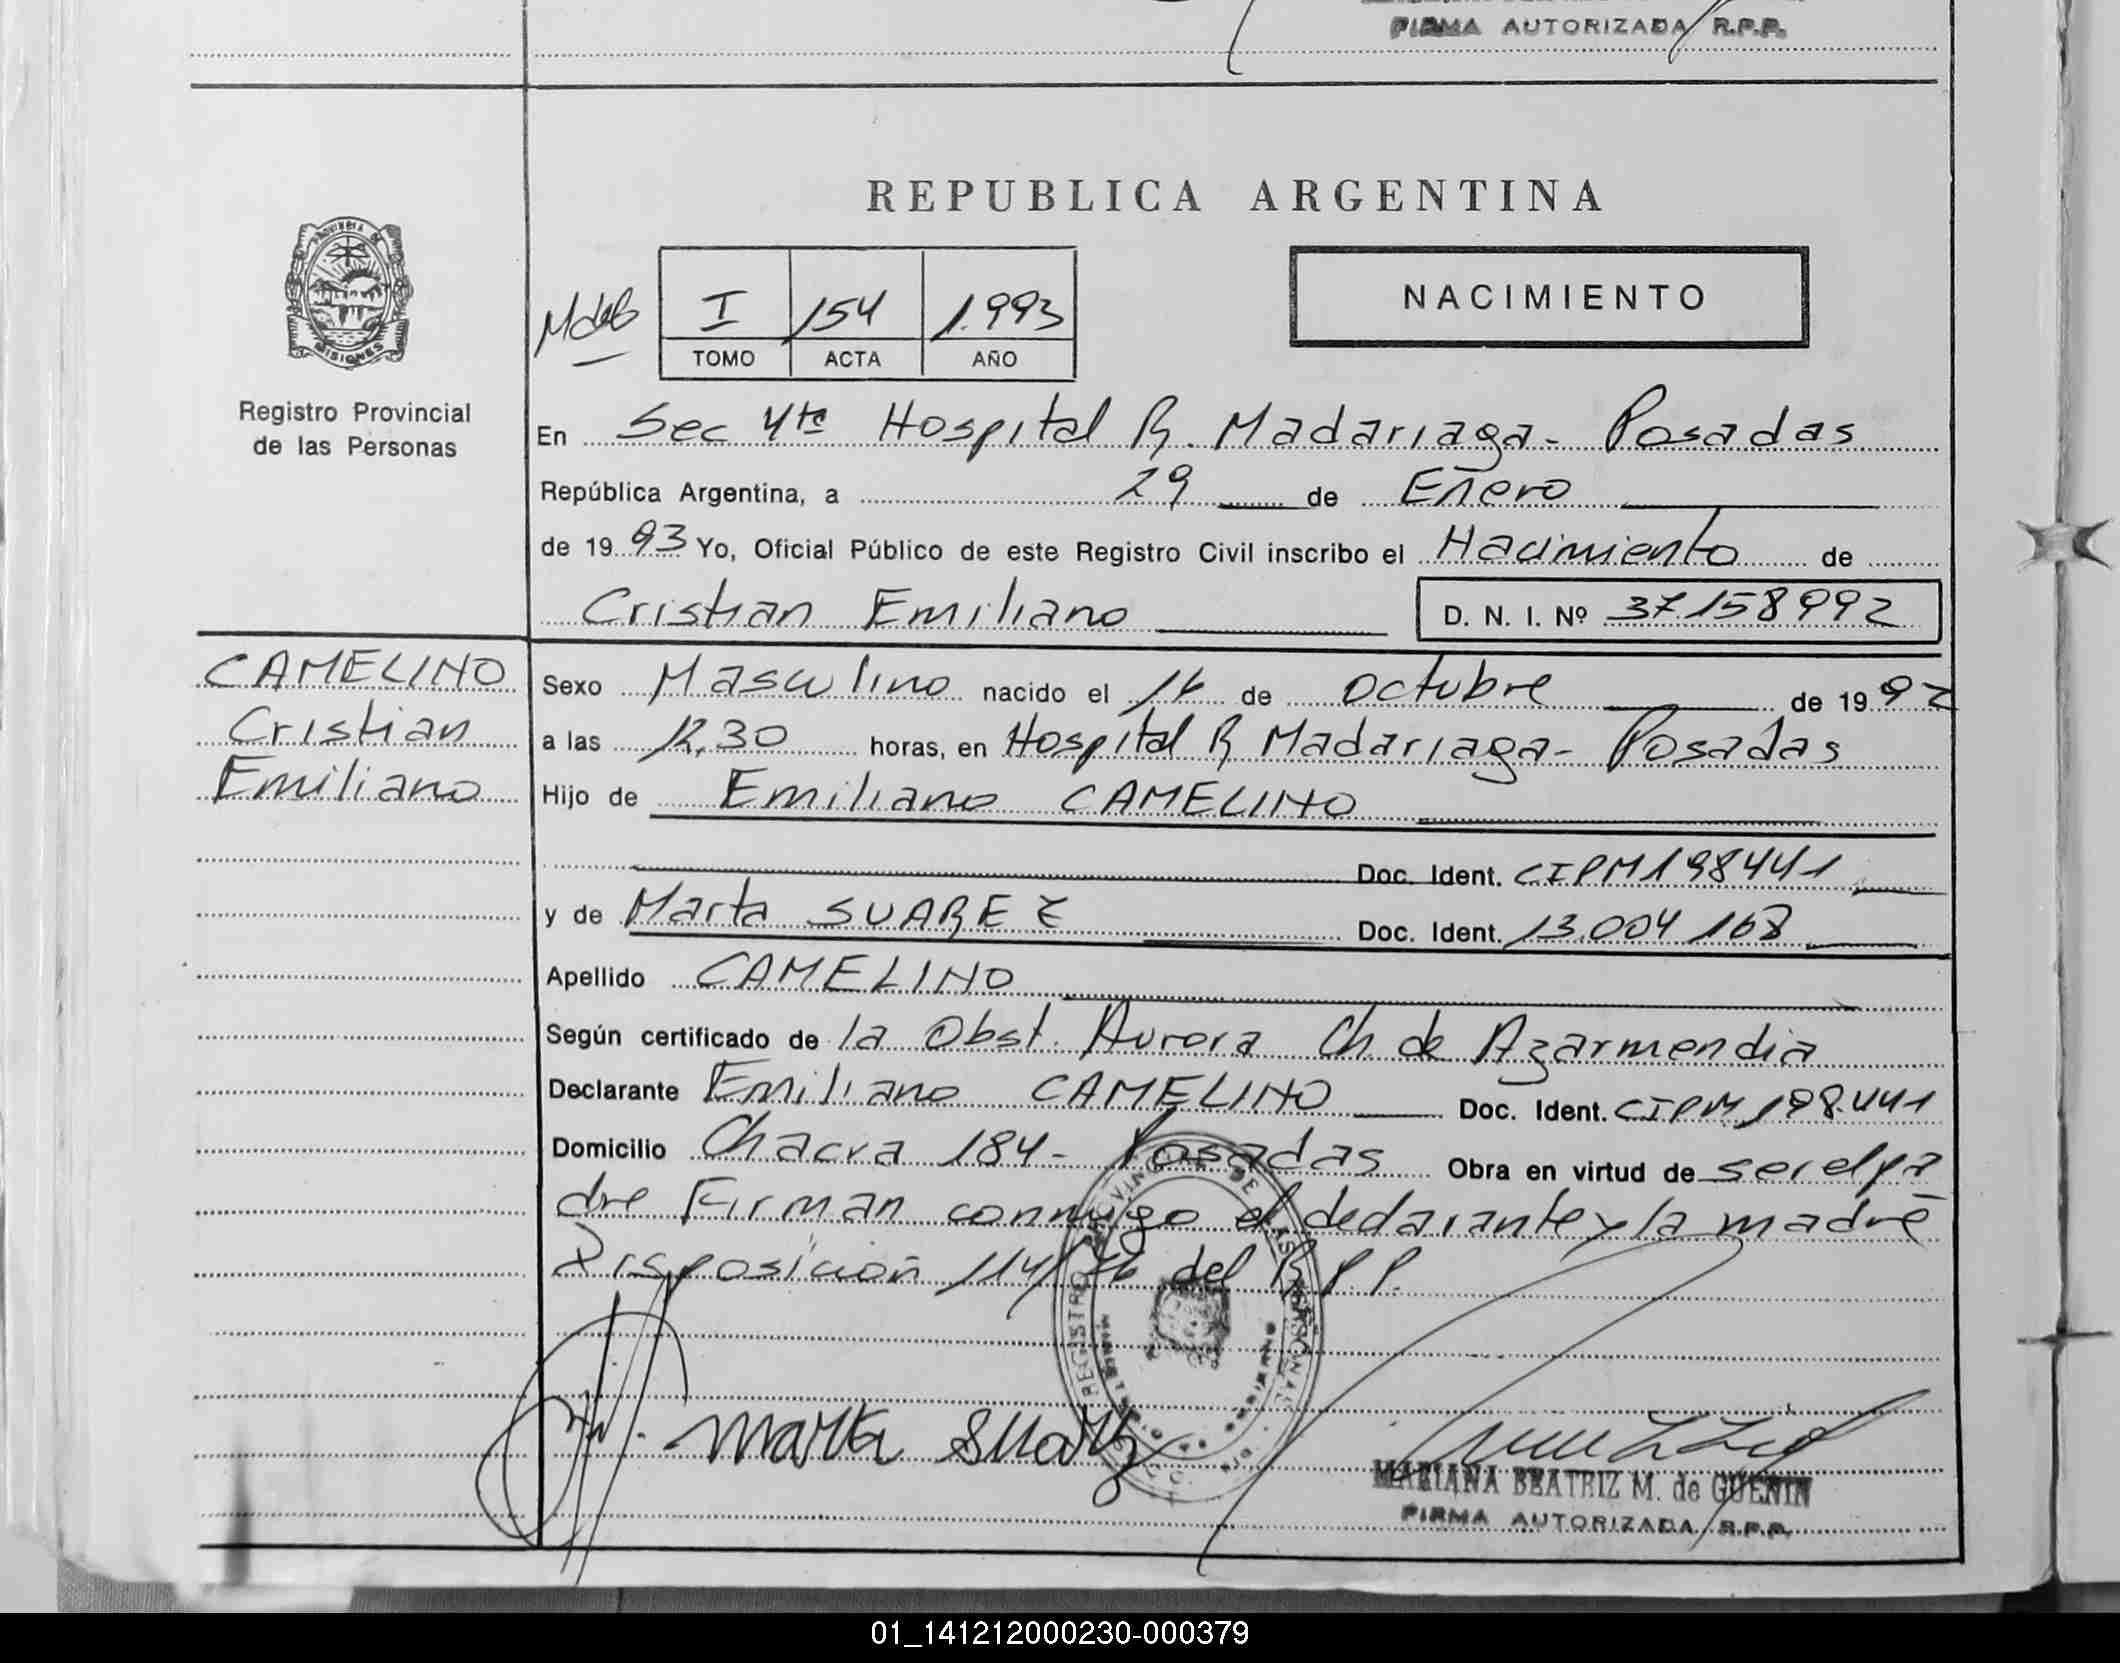 FIRMA AUTORIZADA R.P.P.
REPUBLICA ARGENTINA
PROVINCIA DE
MISIONES
Registro Provincial
de las Personas
I 154 1.993
TOMO ACTA AÑO
NACIMIENTO
En Sec 4ta Hospital R. Madariaga - Posadas
República Argentina, a 29 de Enero
de 1993 Yo, Oficial Público de este Registro Civil inscribo el Nacimiento de
Cristian Emiliano D. N. I. Nº 37.158992
CAMELINO
Cristian
Emiliano
Sexo Masculino nacido el 16 de octubre de 1992
a las 12,30 horas, en Hospital R Madariaga - Posadas
Hijo de Emiliano CAMELINO
Doc. Ident. CIPM 198441
y de Marta SUAREZ Doc. Ident. 13.004 168
Apellido CAMELINO
Según certificado de la Obst. Aurora Ch de Azarmendia
Declarante Emiliano CAMELINO Doc. Ident. CIPM 198.441
Domicilio Chacra 184 - Posadas Obra en virtud de ser el pa
dre Firman conmigo el declarante y la madre
Disposición 114/76 del R.P.P.
REGISTRO PROVINCIAL DE LAS PERSONAS
Marta Suarez
MARIANA BEATRIZ M. de GUENIN
FIRMA AUTORIZADA R.P.P.
01_141212000230-000379